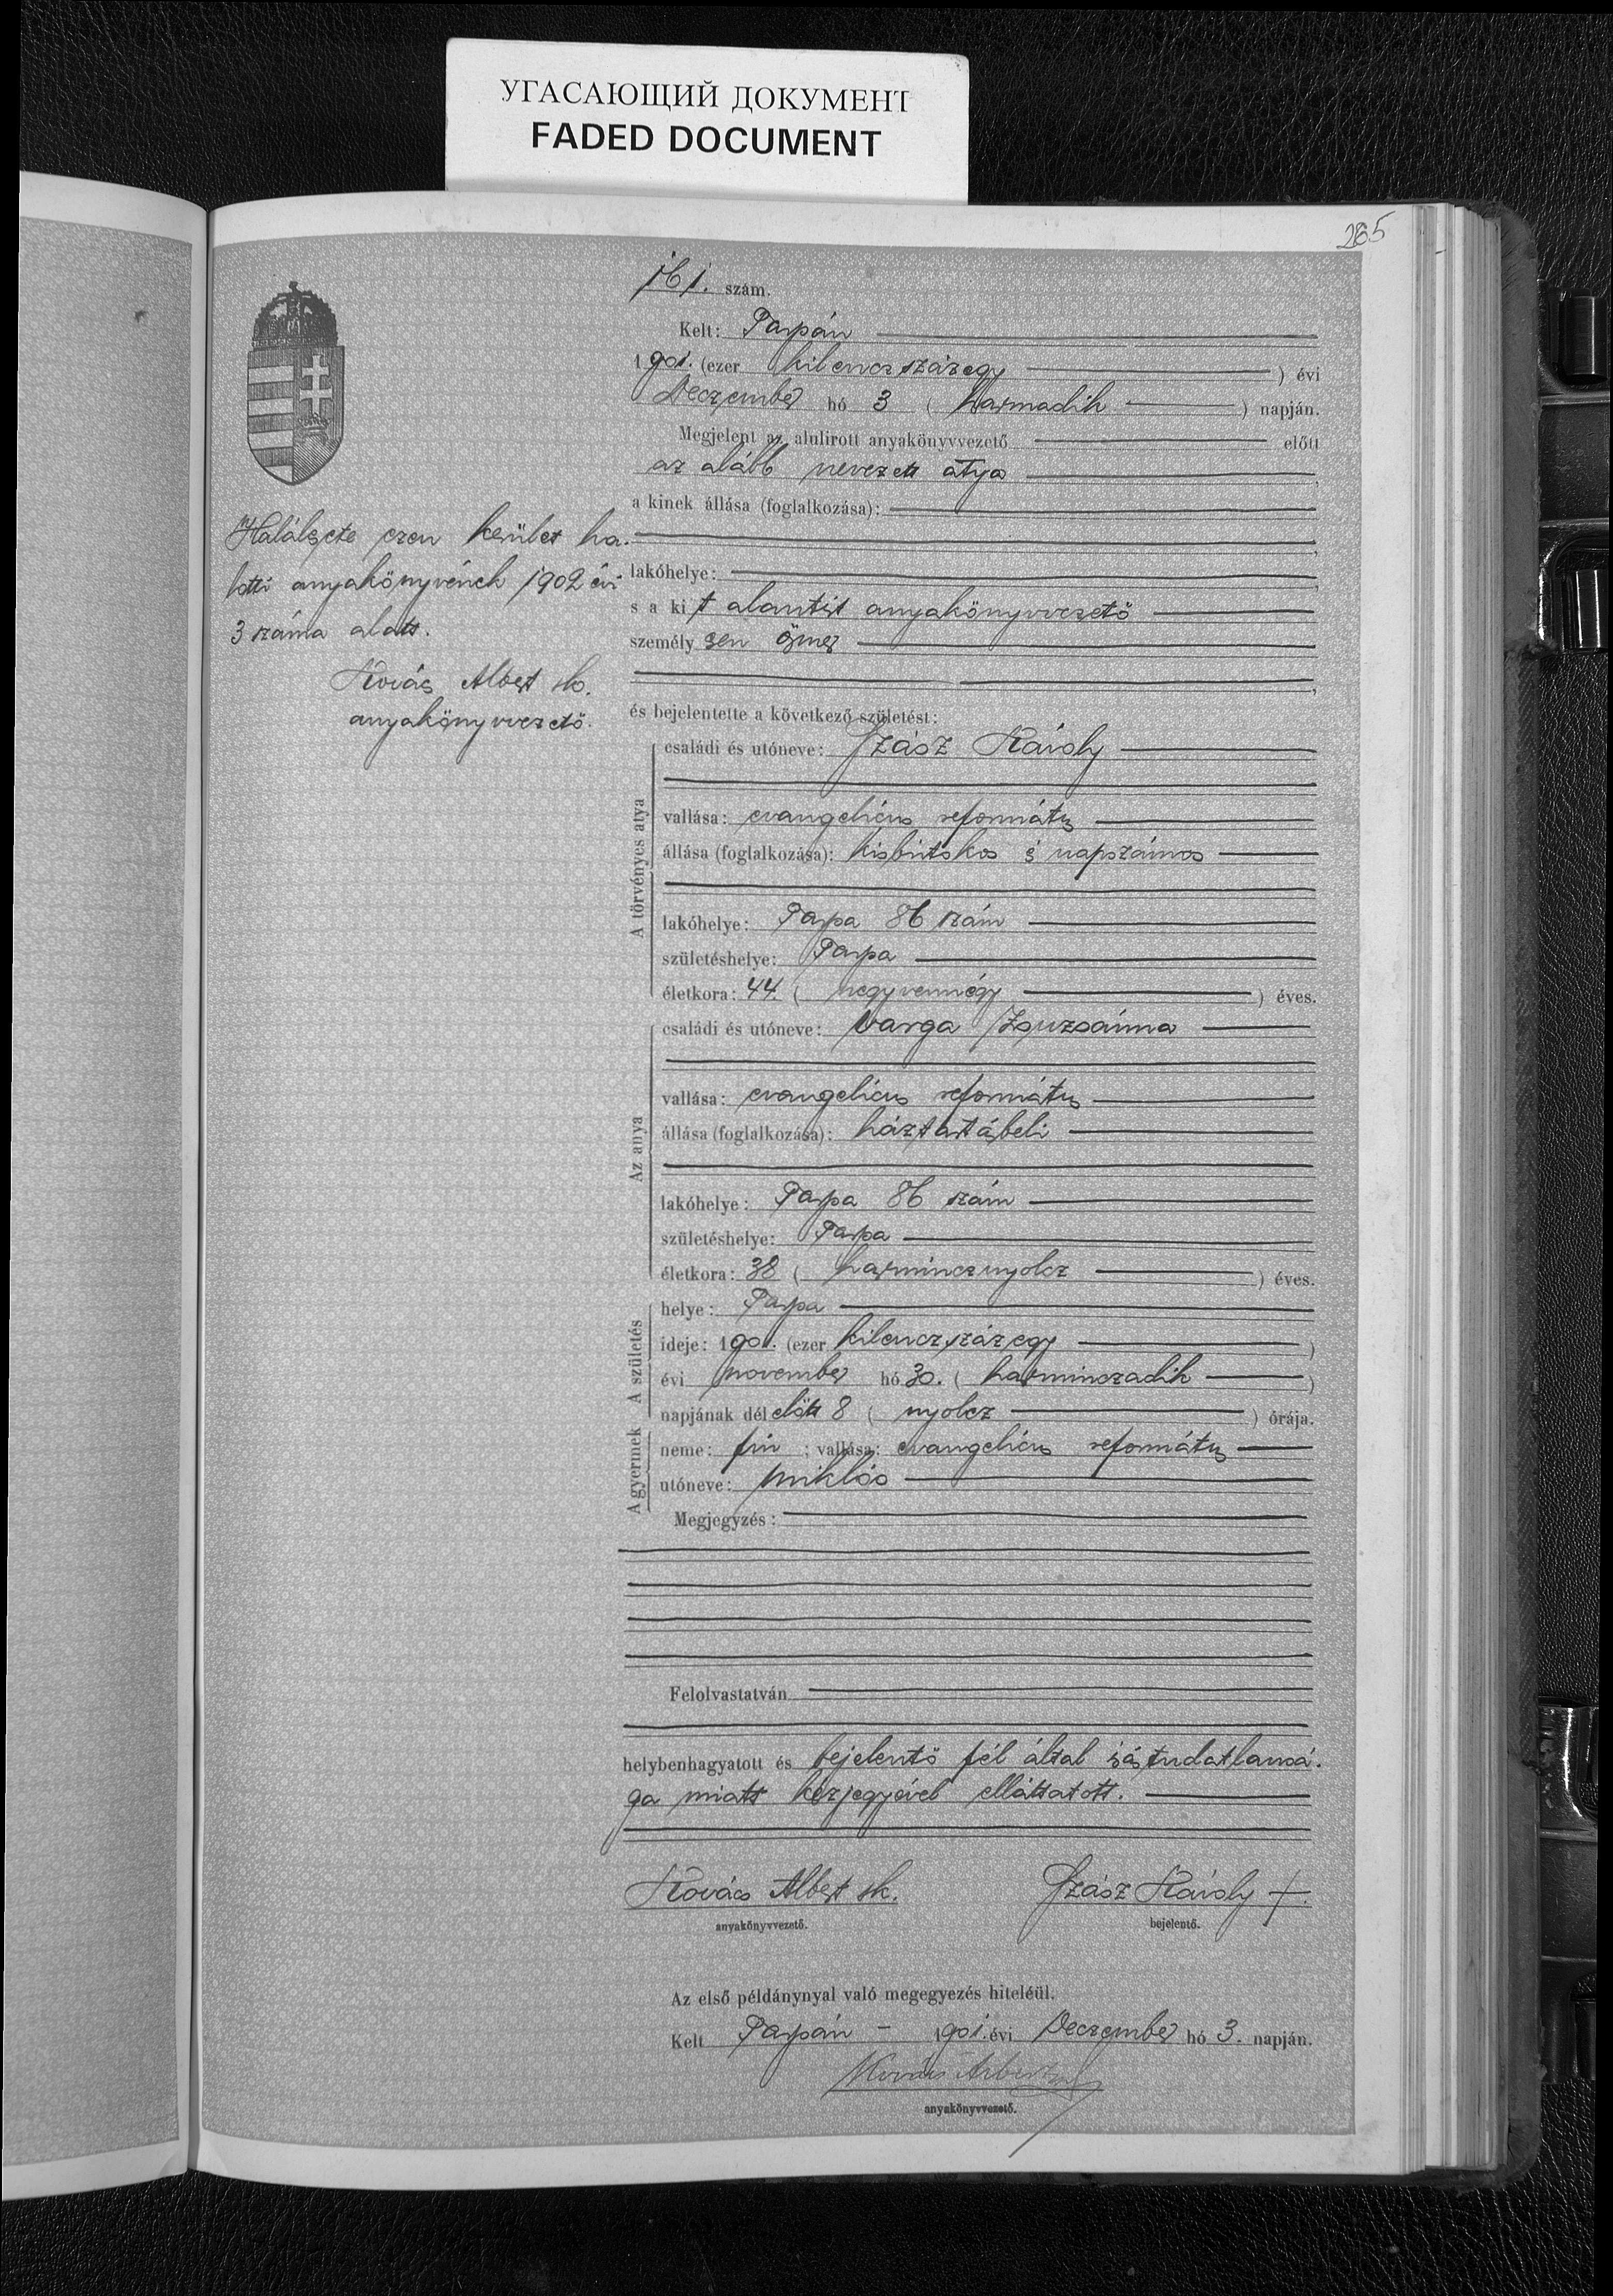 УГАСАЮЩИЙ ДОКУМЕНТ
FADED DOCUMENT
265
161. szám.
Kelt: Tarpán
1901. (ezer kilenczszázegy ) évi
Deczember hó 3 ( harmadik ) napján.
Megjelent az alulirott anyakönyvvezető előtt
az alább nevezett atya ,
a kinek állása (foglalkozása):
,
lakóhelye: ,
s a kit alantirt anyakönyvvezető
személyesen ismer
,
és bejelentette a következő születést:
Halálesete ezen kerület ha-
lotti anyakönyvének 1902 évi
3 száma alatt.
Kovács Albert sk.
anyakönyvvezető.
A törvényes atya
családi és utóneve: Szász Károly
vallása: evangelicus református
állása (foglalkozása): kisbirtokos és napszámos
lakóhelye: Tarpa 86 szám
születéshelye: Tarpa
életkora: 44. ( negyvennégy ) éves.
Az anya
családi és utóneve: Varga Zsuzsánna
vallása: evangelicus református
állása (foglalkozása): háztartásbeli
lakóhelye: Tarpa 86 szám
születéshelye: Tarpa
életkora: 38 ( harmincznyolcz ) éves.
A születés
helye: Tarpa
ideje: 1901. (ezer kilenczszázegy )
évi november hó 30. ( harminczadik )
napjának dél előtt 8 ( nyolcz ) órája.
A gyermek
neme: fiu ; vallása: evangelicus református
utóneve: Miklós
Megjegyzés:
Felolvastatván
helybenhagyatott és bejelentő fél által irástudatlansá-
ga miatt kézjegyével elláttatott.
Kovács Albert sk. Szász Károly +.
anyakönyvvezető. bejelentő.
Az első példánynyal való megegyezés hiteléül.
Kelt Tarpán - 1901. évi Deczember hó 3. napján.
Kovács Albert
anyakönyvvezető.